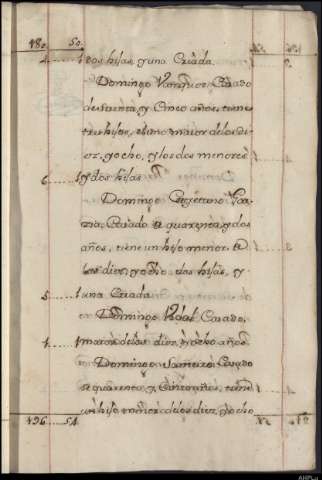 480 50
2 1 dos hijas, y una Criada.
Domingo Casado
de sesenta, y Cinco años, tiene
tres hijos, el uno maior de los Di
ez, y ocho, y los dos menores
6 1 y dos hijas
Domingo Cayetano Gar
zia, Casado de quarenta, y dos
años, tiene un hijo menor de
los diez, y ocho, dos hijas, y
5 1 una Criada.
Domingo Vidal, Casado,
1 1 maior de los diez, y ocho años
Domingo Casado
de quarenta, y Cinco años, tiene
un hijo menor de los diez, y ocho
496 54